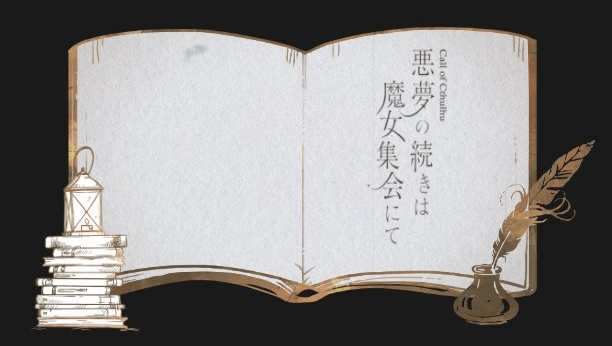 Call of Cthulhu
悪夢の続きは
魔女集会にて